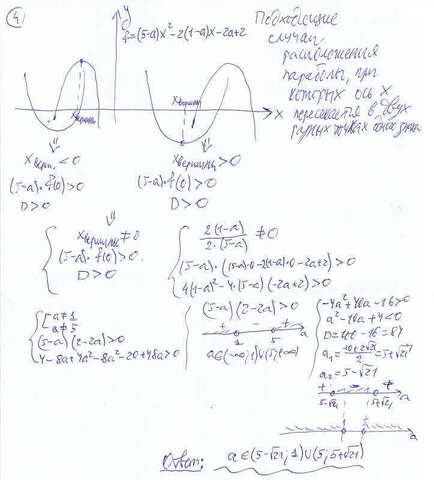 4
y
f=(5-a)x²-2(1-a)x-2a+2
Подходящие
случаи
расположения
параболы, при
которых ось x
пересекается в двух
разных точках
x
xвершины
xвершины
xверш.<0
(5-a)·f(0)>0
D>0
xвершины>0
(5-a)·f(0)>0
D>0
xвершины≠0
(5-a)·f(0)>0.
D>0
2(1-a)/2·(5-a) ≠0
(5-a)·((5-a)·0-2(1-a)·0-2a+2)>0
4(1-a)²-4·(5-a)(-2a+2)>0
a≠1
a≠5
(5-a)(2-2a)>0
4-8a+4a²-8a²-20+48a>0
(5-a)(2-2a)>0
+ - +
1 5 a
a∈(-∞;1)∪(5;+∞)
-4a²+40a-16>0
a²-10a+4<0
D=100-16=84
a₁=10+2√21/2=5+√21
a₂=5-√21
+ - +
5-√21 5+√21 a
a
Ответ: a∈(5-√21;1)∪(5;5+√21)